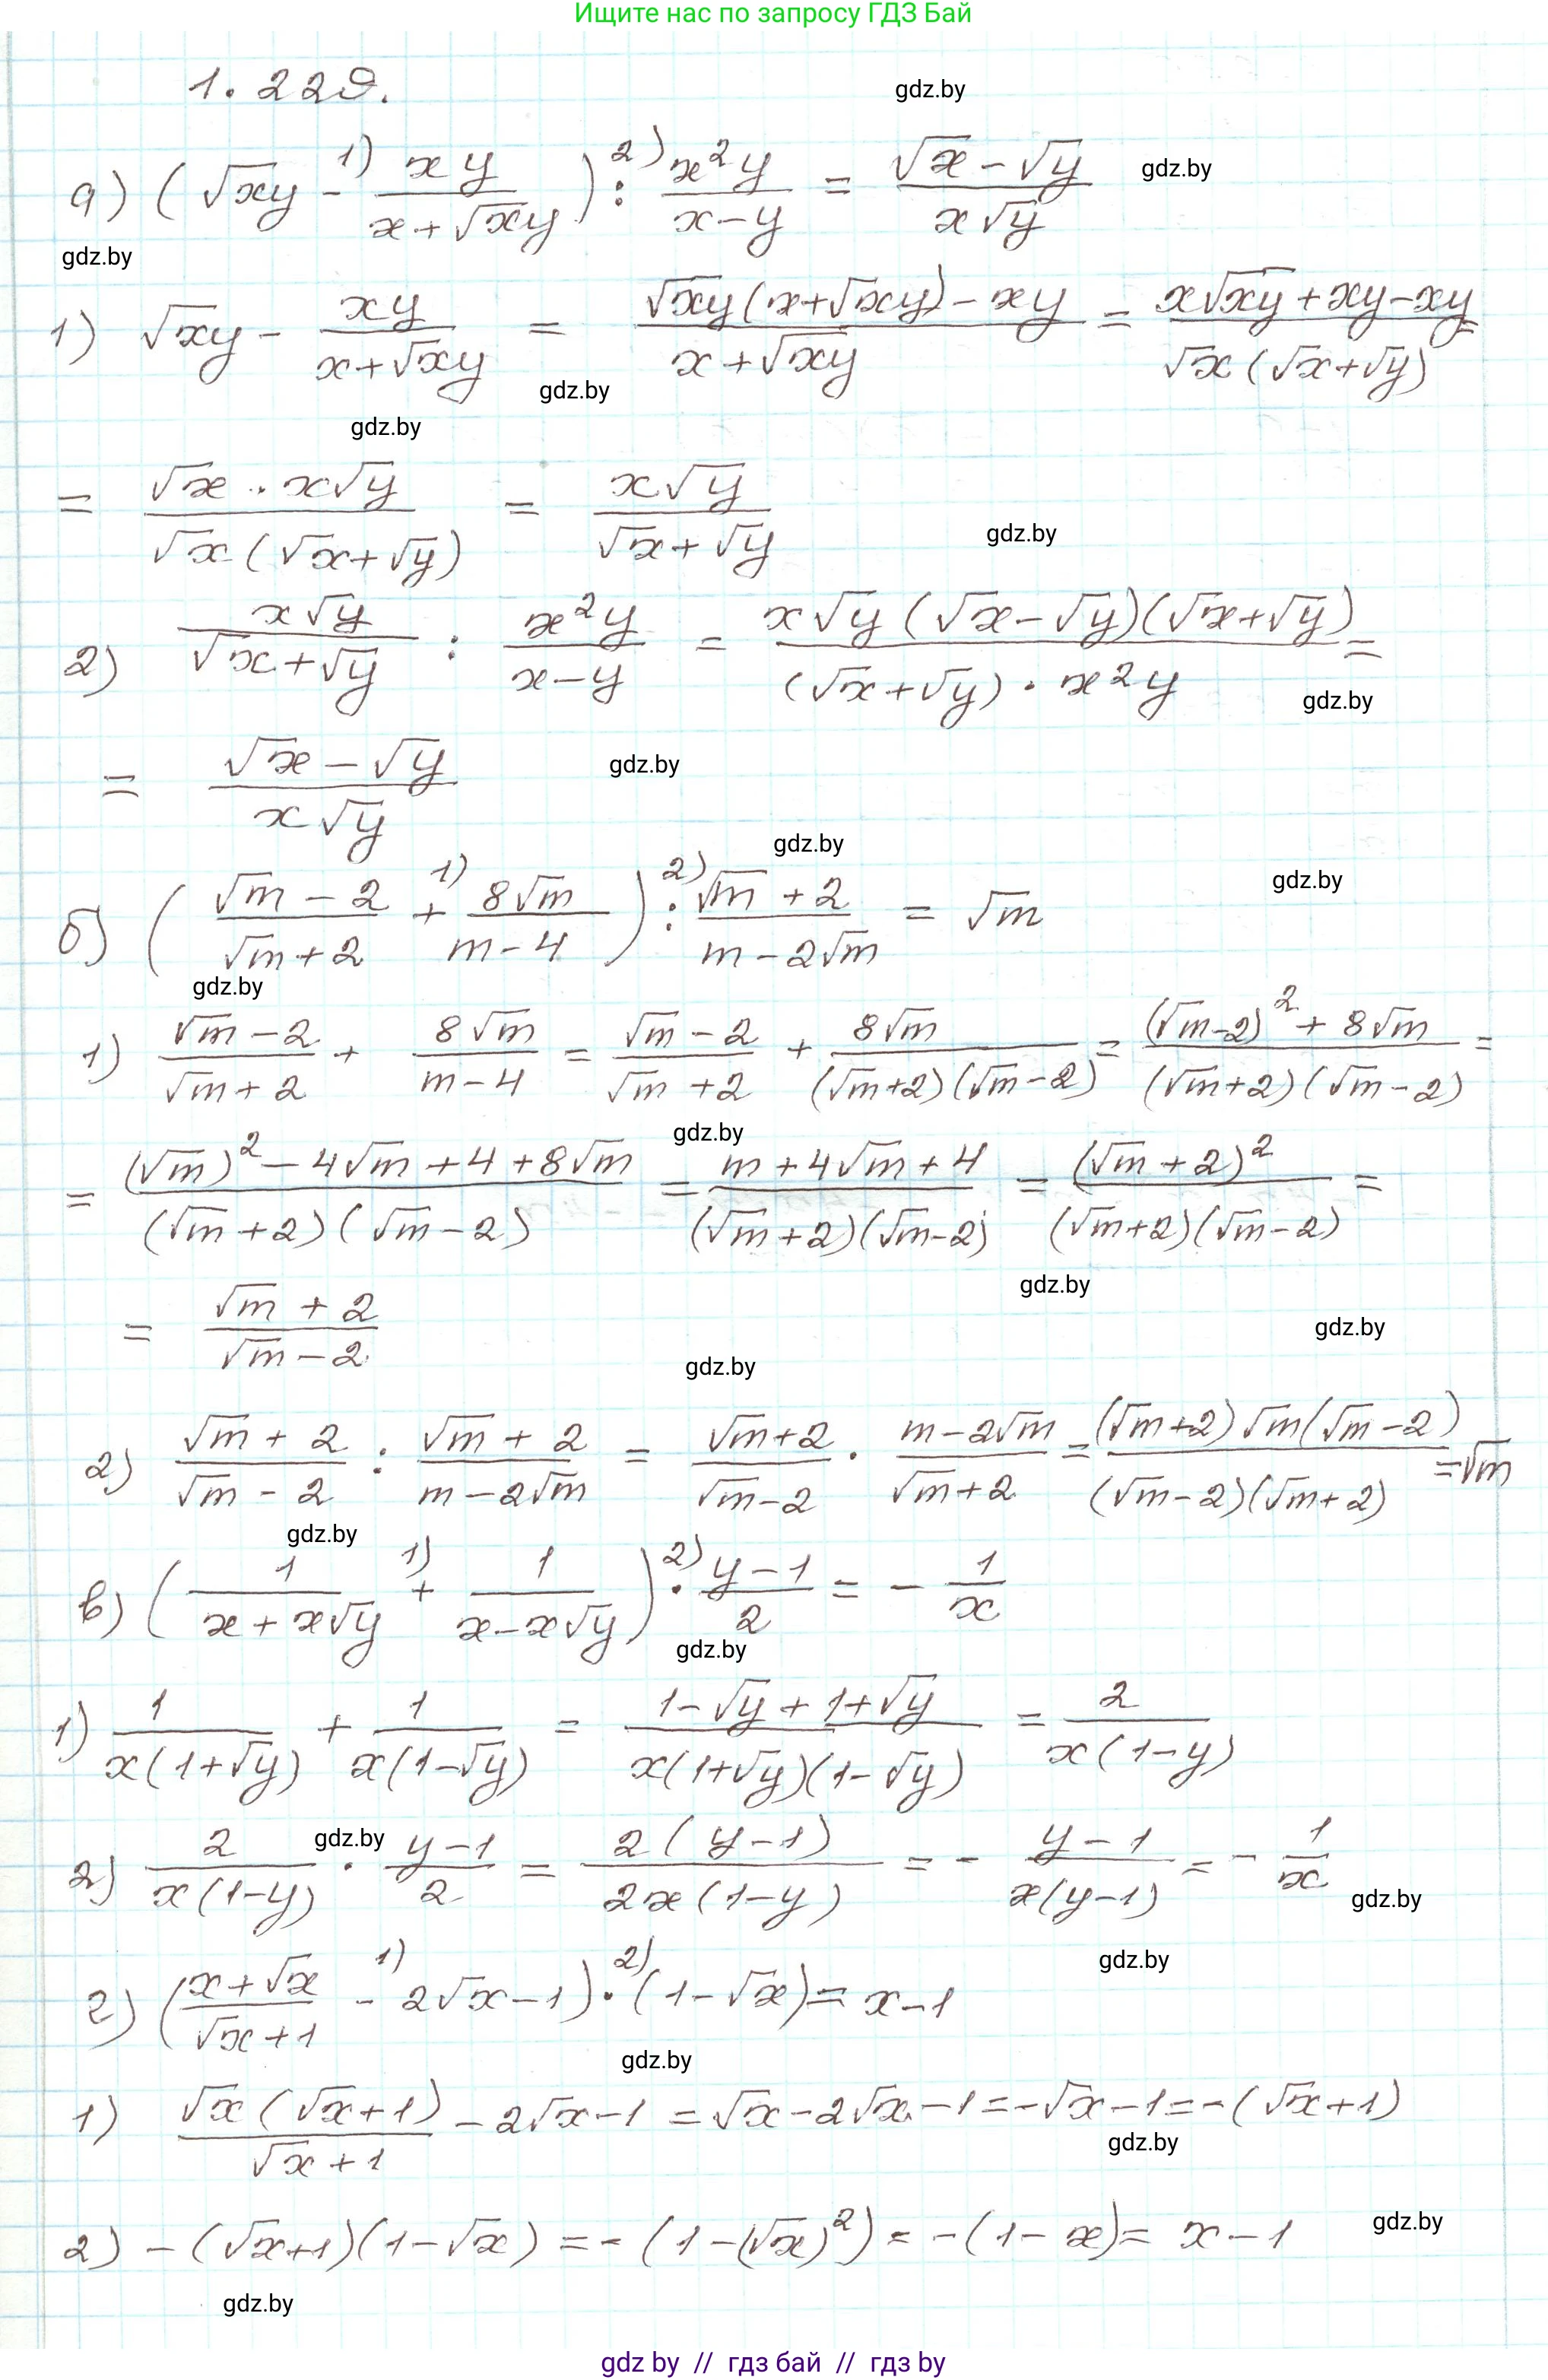 Ищите нас по запросу ГДЗ Бай
1.229.
gdz.by
а) (√xy - 1) xy/(x+√xy)) : 2) x²y/(x-y) = (√x-√y)/(x√y)
gdz.by
gdz.by
1) √xy - xy/(x+√xy) = (√xy(x+√xy)-xy)/(x+√xy) = (x√xy+xy-xy)/(√x(√x+√y)) =
gdz.by
gdz.by
= (√x · x√y)/(√x(√x+√y)) = x√y/(√x+√y)
gdz.by
2) x√y/(√x+√y) : x²y/(x-y) = (x√y(√x-√y)(√x+√y))/((√x+√y)·x²y) =
gdz.by
= (√x-√y)/(x√y)
gdz.by
gdz.by
б) ((√m-2)/(√m+2) 1) + 8√m/(m-4)) : 2) (√m+2)/(m-2√m) = √m
gdz.by
gdz.by
1) (√m-2)/(√m+2) + 8√m/(m-4) = (√m-2)/(√m+2) + 8√m/((√m+2)(√m-2)) = ((√m-2)²+8√m)/((√m+2)(√m-2)) =
gdz.by
= ((√m)²-4√m+4+8√m)/((√m+2)(√m-2)) = (m+4√m+4)/((√m+2)(√m-2)) = (√m+2)²/((√m+2)(√m-2)) =
gdz.by
gdz.by
= (√m+2)/(√m-2)
gdz.by
2) (√m+2)/(√m-2) : (√m+2)/(m-2√m) = (√m+2)/(√m-2) · (m-2√m)/(√m+2) = ((√m+2)√m(√m-2))/((√m-2)(√m+2)) = √m
gdz.by
в) (1/(x+x√y) 1) + 1/(x-x√y)) · 2) (y-1)/2 = - 1/x
gdz.by
1) 1/(x(1+√y)) + 1/(x(1-√y)) = (1-√y+1+√y)/(x(1+√y)(1-√y)) = 2/(x(1-y))
2) 2/(x(1-y)) · (y-1)/2 = 2(y-1)/(2x(1-y)) = - (y-1)/(x(y-1)) = - 1/x
gdz.by
gdz.by
gdz.by
г) ((x+√x)/(√x+1) 1) - 2√x-1) · 2) (1-√x) = x-1
gdz.by
1) √x(√x+1)/(√x+1) - 2√x-1 = √x-2√x-1 = -√x-1 = -(√x+1)
gdz.by
2) -(√x+1)(1-√x) = -(1-(√x)²) = -(1-x) = x-1
gdz.by
gdz.by
gdz by // гдз бай // гдз by